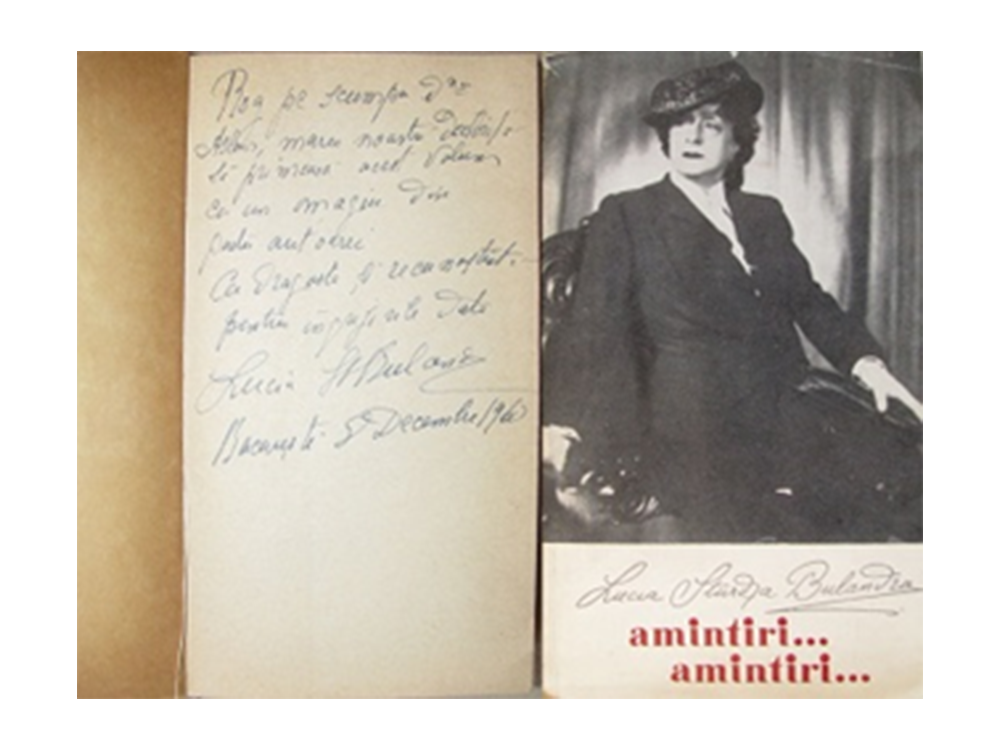 Rog pe scumpa D-na
Aslan, marea noastră
să primească acest volum
ca un omagiu din
partea autoarei
Cu dragoste și recunoștință
pentru îngrijirile date
Lucia St Bulandra
București 5 Decembrie 1960
Lucia Sturdza Bulandra
amintiri...
amintiri...